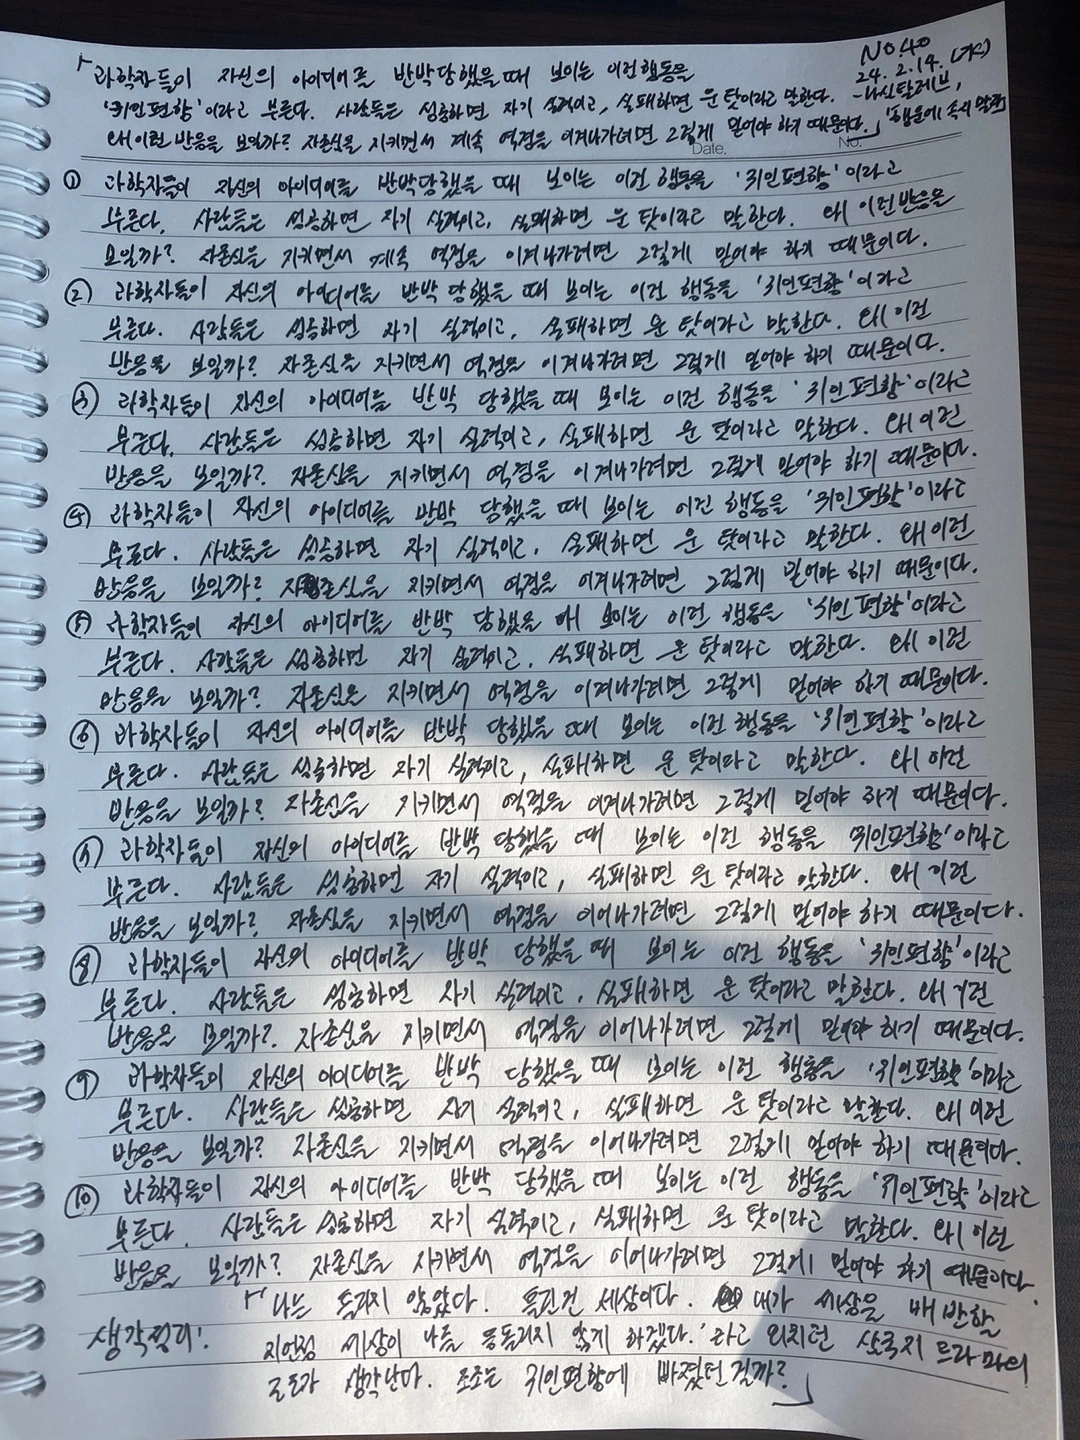 No 40
24. 2. 14. (수)
「과학자들이 자신의 아이디어를 반박당했을 때 보이는 이런 행동을
'귀인편향'이라고 부른다. 사람들은 성공하면 자기 실력이고, 실패하면 운 탓이라고 말한다.
- 나심 탈레브,
왜 이런 반응을 보일까? 자존심을 지키면서 계속 역경을 이겨나가려면 그렇게 믿어야 하기 때문이다.」
'행운에 속지 마라'
Date. No.
① 과학자들이 자신의 아이디어를 반박당했을 때 보이는 이런 행동을 '귀인편향'이라고
부른다. 사람들은 성공하면 자기 실력이고, 실패하면 운 탓이라고 말한다. 왜 이런 반응을
보일까? 자존심을 지키면서 계속 역경을 이겨나가려면 그렇게 믿어야 하기 때문이다.
② 과학자들이 자신의 아이디어를 반박 당했을 때 보이는 이런 행동을 '귀인편향'이라고
부른다. 사람들은 성공하면 자기 실력이고, 실패하면 운 탓이라고 말한다. 왜 이런
반응을 보일까? 자존심을 지키면서 역경을 이겨나가려면 그렇게 믿어야 하기 때문이다.
③ 과학자들이 자신의 아이디어를 반박 당했을 때 보이는 이런 행동을 '귀인편향'이라고
부른다. 사람들은 성공하면 자기 실력이고, 실패하면 운 탓이라고 말한다. 왜 이런
반응을 보일까? 자존심을 지키면서 역경을 이겨나가려면 그렇게 믿어야 하기 때문이다.
④ 과학자들이 자신의 아이디어를 반박 당했을 때 보이는 이런 행동을 '귀인편향'이라고
부른다. 사람들은 성공하면 자기 실력이고, 실패하면 운 탓이라고 말한다. 왜 이런
반응을 보일까? 자존심을 지키면서 역경을 이겨나가려면 그렇게 믿어야 하기 때문이다.
⑤ 과학자들이 자신의 아이디어를 반박 당했을 때 보이는 이런 행동을 '귀인편향'이라고
부른다. 사람들은 성공하면 자기 실력이고, 실패하면 운 탓이라고 말한다. 왜 이런
반응을 보일까? 자존심을 지키면서 역경을 이겨나가려면 그렇게 믿어야 하기 때문이다.
⑥ 과학자들이 자신의 아이디어를 반박 당했을 때 보이는 이런 행동을 '귀인편향'이라고
부른다. 사람들은 성공하면 자기 실력이고, 실패하면 운 탓이라고 말한다. 왜 이런
반응을 보일까? 자존심을 지키면서 역경을 이겨나가려면 그렇게 믿어야 하기 때문이다.
⑦ 과학자들이 자신의 아이디어를 반박 당했을 때 보이는 이런 행동을 '귀인편향'이라고
부른다. 사람들은 성공하면 자기 실력이고, 실패하면 운 탓이라고 말한다. 왜 이런
반응을 보일까? 자존심을 지키면서 역경을 이어나가려면 그렇게 믿어야 하기 때문이다.
⑧ 과학자들이 자신의 아이디어를 반박 당했을 때 보이는 이런 행동을 '귀인편향'이라고
부른다. 사람들은 성공하면 자기 실력이고, 실패하면 운 탓이라고 말한다. 왜 이런
반응을 보일까? 자존심을 지키면서 역경을 이어나가려면 그렇게 믿어야 하기 때문이다.
⑨ 과학자들이 자신의 아이디어를 반박 당했을 때 보이는 이런 행동을 '귀인편향'이라고
부른다. 사람들은 성공하면 자기 실력이고, 실패하면 운 탓이라고 말한다. 왜 이런
반응을 보일까? 자존심을 지키면서 역경을 이어나가려면 그렇게 믿어야 하기 때문이다.
⑩ 과학자들이 자신의 아이디어를 반박 당했을 때 보이는 이런 행동을 '귀인편향'이라고
부른다. 사람들은 성공하면 자기 실력이고, 실패하면 운 탓이라고 말한다. 왜 이런
반응을 보일까? 자존심을 지키면서 역경을 이어나가려면 그렇게 믿어야 하기 때문이다.
「'나는 틀리지 않았다. 틀린건 세상이다. 내가 세상을 배반할
생각정리! 지언정 세상이 나를 등돌리지 않게 하겠다.' 라고 외치던 삼국지 드라마의
조조가 생각난다. 조조는 귀인편향에 빠졌던 걸까?」